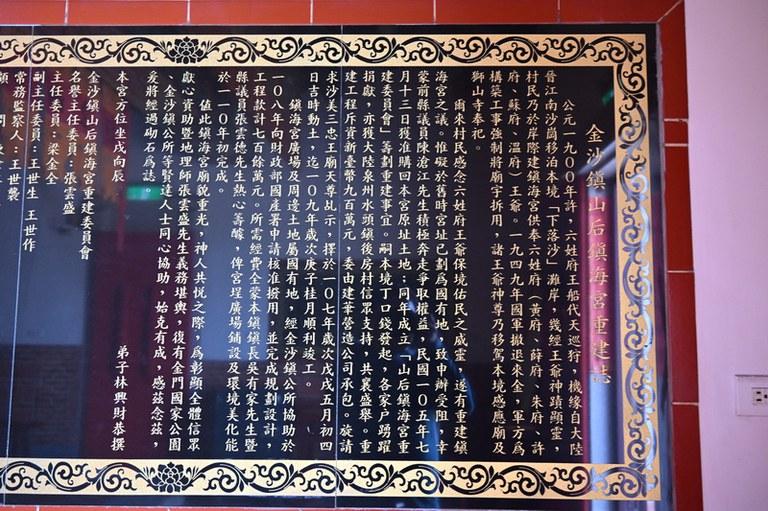 金沙鎮山后鎮海宮重建誌
公元一九00年許，六姓府王船代天巡狩，機緣自大陸
晉江南沙崗移泊本境「下落沙」灘岸，幾經王爺神蹟顯靈，
村民乃於岸際建鎮海宮供奉六姓府（黃府、薛府、朱府、許
府、蘇府、溫府）王爺。一九四九年國軍撤退來金，軍方為
構築工事強制將廟宇拆用，諸王爺神尊乃移駕本境感應廟及
獅山寺奉祀。
爾來村民感念六姓府王爺保境佑民之威靈，遂有重建鎮
海宮之議。惟礙於舊時宮址已劃為國有地，致申辦受阻，幸
蒙前縣議員陳滄江先生積極奔走爭取權益，民國一0五年七
月十三日獲准購回本宮原址土地；同年成立「山后鎮海宮重
建委員會」籌劃重建事宜。嗣本境丁口錢發起，各家戶踴躍
捐獻，亦獲大陸泉州水頭鎮後房村信眾支持，共襄盛舉。重
建工程斥資新臺幣九百萬元，委由建華營造公司承包。旋請
求沙美三忠王廟天尊乩示，擇於一0七年歲次戊戌五月初四
日吉時動土，迄一0九年歲次庚子桂月順利竣工。
鎮海宮廣場及周邊土地屬國有地，經金沙鎮公所協助於
一0八年向財政部國產署申請核准撥用，並完成規劃設計，
工程款計七百餘萬元。所需經費全蒙本鎮鎮長吳有家先生暨
縣議員張雲德先生熱心籌醵，俾宮埕廣場鋪設及環境美化能
於一一0年初完成。
值此鎮海宮廟貌重光，神人共悅之際，為彰顯全體信眾
獻心資助暨地理師張雲盛先生義務堪輿，復有金門國家公園
、金沙鎮公所等賢達人士同心協助，始克有成，感茲念茲，
爰將經過砌石為誌。
弟子林興財恭撰
本宮方位坐戌向辰
金沙鎮山后鎮海宮重建委員會
名譽主任委員：張雲盛
主任委員：梁金全
副主任委員：王世生 王世作
常務監察人：王世襲